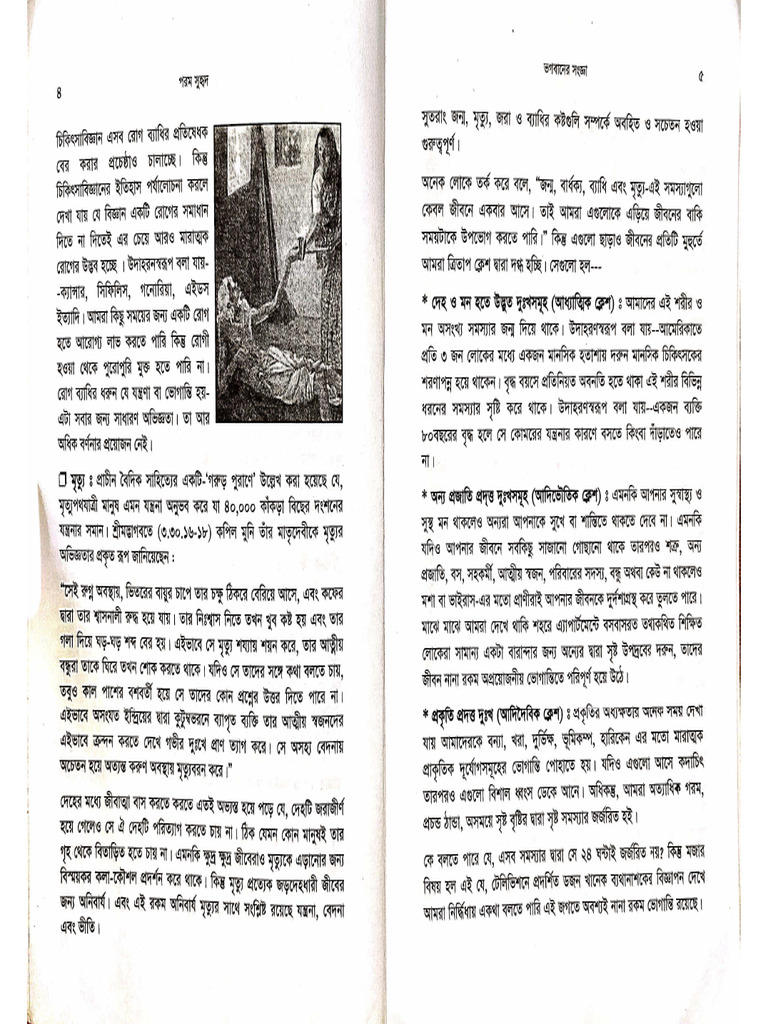 ৪
পরম সুহৃদ
চিকিৎসাবিজ্ঞান এসব রোগ ব্যাধির প্রতিষেধক
বের করার প্রচেষ্টাও চালাচ্ছে। কিন্তু
চিকিৎসাবিজ্ঞানের ইতিহাস পর্যালোচনা করলে
দেখা যায় যে বিজ্ঞান একটি রোগের সমাধান
দিতে না দিতেই এর চেয়ে আরও মারাত্মক
রোগের উদ্ভব হচ্ছে । উদাহরনস্বরূপ বলা যায়-
-ক্যান্সার, সিফিলিস, গনোরিয়া, এইডস
ইত্যাদি। আমরা কিছু সময়ের জন্য একটি রোগ
হতে আরোগ্য লাভ করতে পারি কিন্তু রোগী
হওয়া থেকে পুরোপুরি মুক্ত হতে পারি না।
রোগ ব্যাধির ধরুন যে যন্ত্রণা বা ভোগান্তি হয়-
এটা সবার জন্য সাধারণ অভিজ্ঞতা। তা আর
অধিক বর্ণনার প্রয়োজন নেই।
❑ মৃত্যু : প্রাচীন বৈদিক সাহিত্যের একটি-‘গরুড় পুরাণে’ উল্লেখ করা হয়েছে যে,
মৃত্যুপথযাত্রী মানুষ এমন যন্ত্রনা অনুভব করে যা ৪০,০০০ কাঁকড়া বিছের দংশনের
যন্ত্রনার সমান। শ্রীমদ্ভাগবতে (৩.৩০.১৬-১৮) কপিল মুনি তাঁর মাতৃদেবীকে মৃত্যুর
অভিজ্ঞতার প্রকৃত রূপ জানিয়েছেন :
“সেই রুগ্ন অবস্থায়, ভিতরের বায়ুর চাপে তার চক্ষু ঠিকরে বেরিয়ে আসে, এবং কফের
দ্বারা তার শ্বাসনালী রুদ্ধ হয়ে যায়। তার নিঃশ্বাস নিতে তখন খুব কষ্ট হয় এবং তার
গলা দিয়ে ঘড়-ঘড় শব্দ বের হয়। এইভাবে সে মৃত্যু শয্যায় শয়ন করে, তার আত্মীয়
বন্ধুরা তাকে ঘিরে তখন শোক করতে থাকে। যদিও সে তাদের সঙ্গে কথা বলতে চায়,
তবুও কাল পাশের বশবর্তী হয়ে সে তাদের কোন প্রশ্নের উত্তর দিতে পারে না।
এইভাবে অসংযত ইন্দ্রিয়ের দ্বারা কুটুম্বভরনে ব্যাপৃত ব্যক্তি তার আত্মীয় স্বজনদের
এইভাবে ক্রন্দন করতে দেখে গভীর দুঃখে প্রাণ ত্যাগ করে। সে অসহ্য বেদনায়
অচেতন হয়ে অত্যন্ত করুণ অবস্থায় মৃত্যুবরন করে।”
দেহের মধ্যে জীবাত্মা বাস করতে করতে এতই অভ্যস্ত হয়ে পড়ে যে, দেহটি জরাজীর্ণ
হয়ে গেলেও সে ঐ দেহটি পরিত্যাগ করতে চায় না। ঠিক যেমন কোন মানুষই তার
গৃহ থেকে বিতাড়িত হতে চায় না। এমনকি ক্ষুদ্র ক্ষুদ্র জীবেরাও মৃত্যুকে এড়ানোর জন্য
বিস্ময়কর কলা-কৌশল প্রদর্শন করে থাকে। কিন্তু মৃত্যু প্রত্যেক জড়দেহধারী জীবের
জন্য অনিবার্য। এবং এই রকম অনিবার্য মৃত্যুর সাথে সংশ্লিষ্ট রয়েছে যন্ত্রনা, বেদনা
এবং ভীতি।
ভগবানের সংজ্ঞা
৫
সুতরাং জন্ম, মৃত্যু, জরা ও ব্যাধির কষ্টগুলি সম্পর্কে অবহিত ও সচেতন হওয়া
গুরুত্বপূর্ণ।
অনেক লোকে তর্ক করে বলে, “জন্ম, বার্ধক্য, ব্যাধি এবং মৃত্যু-এই সমস্যাগুলো
কেবল জীবনে একবার আসে। তাই আমরা এগুলোকে এড়িয়ে জীবনের বাকি
সময়টাকে উপভোগ করতে পারি।” কিন্তু এগুলো ছাড়াও জীবনের প্রতিটি মুহূর্তে
আমরা ত্রিতাপ ক্লেশ দ্বারা দগ্ধ হচ্ছি। সেগুলো হল---
* দেহ ও মন হতে উদ্ভুত দুঃখসমূহ (আধ্যাত্মিক ক্লেশ) : আমাদের এই শরীর ও
মন অসংখ্য সমস্যার জন্ম দিয়ে থাকে। উদাহরণস্বরূপ বলা যায়--আমেরিকাতে
প্রতি ৩ জন লোকের মধ্যে একজন মানসিক হতাশায় দরুন মানসিক চিকিৎসকের
শরণাপন্ন হয়ে থাকেন। বৃদ্ধ বয়সে প্রতিনিয়ত অবনতি হতে থাকা এই শরীর বিভিন্ন
ধরনের সমস্যার সৃষ্টি করে থাকে। উদাহরণস্বরূপ বলা যায়--একজন ব্যক্তি
৮০বছরের বৃদ্ধ হলে সে কোমরের যন্ত্রনার কারণে বসতে কিংবা দাঁড়াতেও পারে
না।
* অন্য প্রজাতি প্রদ্ত্ত দুঃখসমূহ (আদিভৌতিক ক্লেশ) : এমনকি আপনার সুস্বাস্থ্য ও
সুস্থ মন থাকলেও অন্যরা আপনাকে সুখে বা শান্তিতে থাকতে দেবে না। এমনকি
যদিও আপনার জীবনে সবকিছু সাজানো গোছানো থাকে তারপরও শত্রু, অন্য
প্রজাতি, বস, সহকর্মী, আত্মীয় স্বজন, পরিবারের সদস্য, বন্ধু অথবা কেউ না থাকলেও
মশা বা ভাইরাস-এর মতো প্রাণীরাই আপনার জীবনকে দুর্দশাগ্রস্থ করে তুলতে পারে।
মাঝে মাঝে আমরা দেখে থাকি শহরে এ্যাপার্টমেন্টে বসবাসরত তথাকথিত শিক্ষিত
লোকেরা সামান্য একটা বারান্দার জন্য অন্যের দ্বারা সৃষ্ট উপদ্রবের দরুন, তাদের
জীবন নানা রকম অপ্রয়োজনীয় ভোগান্তিতে পরিপূর্ণ হয়ে উঠে।
* প্রকৃতি প্রদত্ত দুঃখ (আদিদৈবিক ক্লেশ) : প্রকৃতির অধ্যক্ষতায় অনেক সময় দেখা
যায় আমাদেরকে বন্যা, খরা, দুর্ভিক্ষ, ভূমিকম্প, হারিকেন এর মতো মারাত্মক
প্রাকৃতিক দূর্যোগসমূহের ভোগান্তি পোহাতে হয়। যদিও এগুলো আসে কদাচিৎ
তারপরও এগুলো বিশাল ধ্বংস ডেকে আনে। অধিকন্তু, আমরা অত্যাধিক গরম,
প্রচন্ড ঠান্ডা, অসময়ে সৃষ্ট বৃষ্টির দ্বারা সৃষ্ট সমস্যার জর্জরিত হই।
কে বলতে পারে যে, এসব সমস্যার দ্বারা সে ২৪ ঘন্টাই জর্জরিত নয়? কিন্তু মজার
বিষয় হল এই যে, টেলিভিশনে প্রদর্শিত ডজন খানেক ব্যথানাশকের বিজ্ঞাপন দেখে
আমরা নির্দ্ধিধায় একথা বলতে পারি এই জগতে অবশ্যই নানা রকম ভোগান্তি রয়েছে।